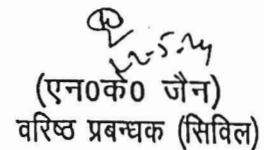 22-5-24
(एन0के0 जैन)
वरिष्ठ प्रबन्धक (सिविल)